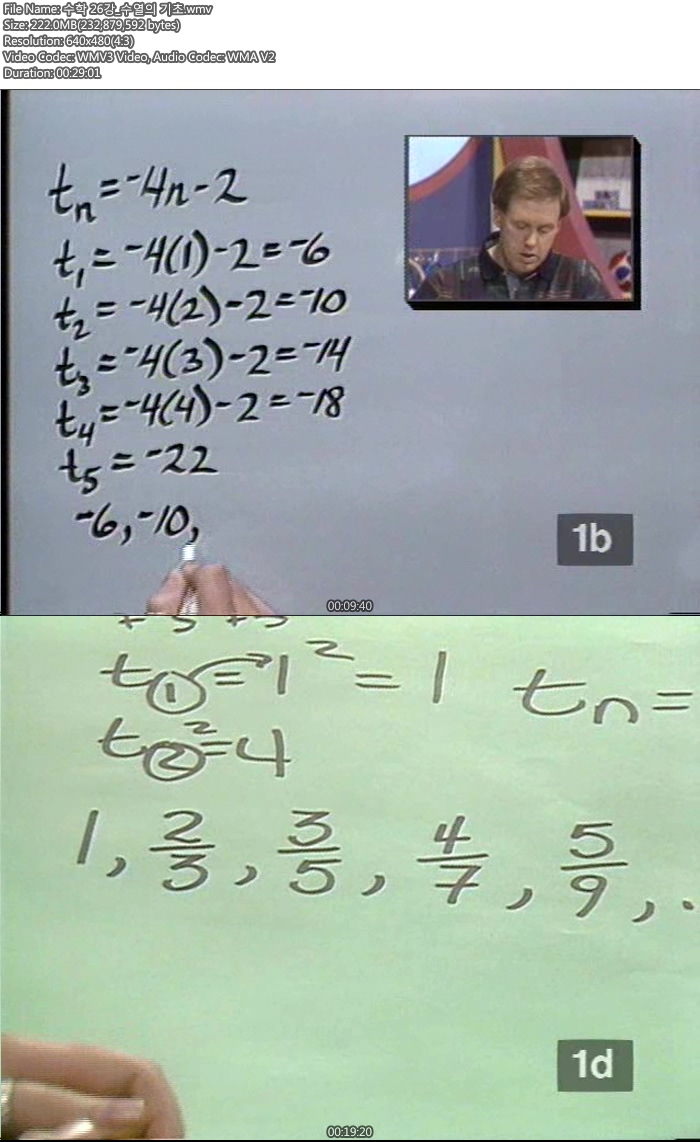 File Name: 수학 26강_수열의 기초.wmv
Size: 222.0MB(232,879,592 bytes)
Resolution: 640x480(4:3)
Video Codec: WMV3 Video, Audio Codec: WMA V2
Duration: 00:29:01
tₙ = ⁻4n - 2
t₁ = ⁻4(1) - 2 = ⁻6
t₂ = ⁻4(2) - 2 = ⁻10
t₃ = ⁻4(3) - 2 = ⁻14
t₄ = ⁻4(4) - 2 = ⁻18
t₅ = ⁻22
⁻6, ⁻10,
1b
00:09:40
t① = 1² = 1 tₙ =
t②² = 4
1, 2/3, 3/5, 4/7, 5/9, .
1d
00:19:20